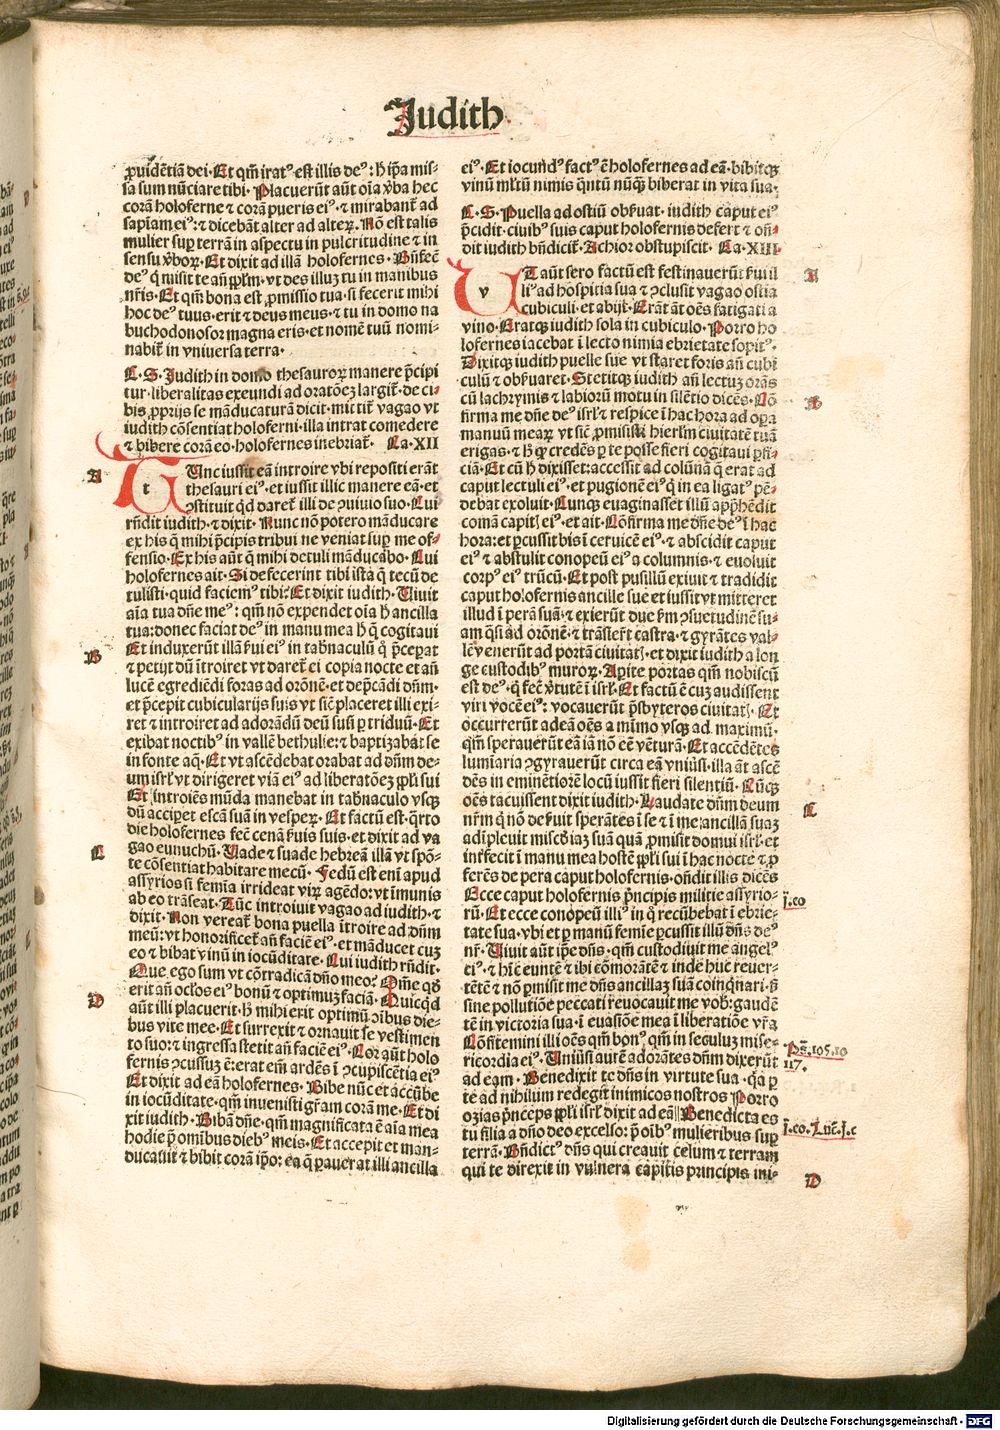 Judith
ꝓuidẽtiã dei. Et qm̃ irat⁹ est illis de⁹: h̃ ip̃a mis-
sa sum nũciare tibi. Placuerũt aũt oĩa v̾ba hec
corã holoferne ⁊ corã pueris ei⁹: ⁊ mirabant̃ ad
sapiam ei⁹: ⁊ dicebãt alter ad alterꝝ. Nõ est talis
mulier suꝑ terrã in aspectu in pulcritudine ⁊ in
sensu v̾boꝝ. Et dixit ad illã holofernes. Bñfec̃
de⁹ q̃ misit te añ ppl̃m. vt des illuꝫ tu in manibus
nr̃is. Et qm̃ bona est ꝓmissio tua. si fecerit mihi
hoc de⁹ tuus. erit ⁊ deus meus. ⁊ tu in domo na
buchodonosor magna eris. et nomẽ tuũ nomi-
nabit̃ in vniuersa terra.
C. S. Judith in domo thesauroꝝ manere p̃cipi
tur. liberalitas exeundi ad oratõeꝫ largit̃. de ci-
bis ꝓprijs se mãducaturã dicit. mittit̃ vagao vt
iudith cõsentiat holoferni. illa intrat comedere
⁊ bibere corã eo. holofernes inebriat̃. Ca. XII
A
TUnc iussit eã introire vbi repositi erãt
thesauri ei⁹. et iussit illic manere eã. et
ꝯstituit qd̃ daret̃ illi de ꝯuiuio suo. Cui
rñdit iudith. ⁊ dixit. Nunc nõ potero mãducare
ex his q̃ mihi p̃cipis tribui ne veniat suꝑ me of-
fensio. Ex his aũt q̃ mihi detuli mãducabo. Cui
holofernes ait. Si defecerint tibi ista q̃ tecũ de
tulisti. quid faciem⁹ tibi? Et dixit iudith. Viuit
aĩa tua dñe me⁹: qm̃ nõ expendet oĩa h̃ ancilla
tua: donec faciat de⁹ in manu mea h̃ q̃ cogitaui
B
Et induxerũt illã s̾ui ei⁹ in tab̾naculũ q̊ p̃ceꝑat
⁊ petijt dũ ĩtroiret vt daret̃ ei copia nocte et añ
lucẽ egrediẽdi foras ad orõnẽ. et dep̃cãdi dñm.
et p̃cepit cubicularijs suis vt sic̃ placeret illi exi-
ret ⁊ introiret ad adorãdũ deũ suũ ꝑ triduũ. Et
exibat noctib⁹ in vallẽ bethulie: ⁊ baptizabat se
in fonte aq̃. Et vt ascẽdebat orabat ad dñm de-
um isrl̃ vt dirigeret viã ei⁹ ad liberatõeꝫ ppl̃i sui
Et introiẽs mũda manebat in tab̾naculo vsqꝫ
dũ acciꝑet escã suã in vesꝑe. Et factũ est. q̃rto
die holofernes fec̃ cenã s̾uis suis. et dixit ad va
C
gao eunuchũ. Vade ⁊ suade hebreã illã vt spõ-
te cõsentiat habitare mecũ. Fedũ est eni apud
assyrios si femĩa irrideat viꝝ agẽdo: vt ĩmunis
ab eo trãseat. Tũc introiuit vagao ad iudith. ⁊
dixit. Non vereat̃ bona puella ĩtroire ad dñm
meũ: vt honorificet̃ añ faciẽ ei⁹. et mãducet cuꝫ
eo ⁊ bibat vinũ in iocũditate. Cui iudith rñdit.
Que ego sum vt cõtradicã dño meo? Om̃e qd̾
D
erit añ ocl̾os ei⁹ bonũ ⁊ optimuꝫ faciã. Quicq̃d
aũt illi placuerit. h̃ mihi erit optimũ oĩbus die-
bus vite mee. Et surrexit ⁊ ornauit se vestimen
to suo: ⁊ ingressa stetit añ faciẽ ei⁹. Cor aũt holo
fernis ꝯcussuꝫ ẽ: erat em̃ ardẽs ĩ ꝯcupiscẽtia ei⁹
Et dixit ad eã holofernes. Bibe nũc et accũbe
in iocũditate. qm̃ inuenisti gr̃am corã me. Et di
xit iudith. Bibã dñe. qm̃ magnificata ẽ aĩa mea
hodie p̃ omĩbus dieb⁹ meis. Et accepit et man-
ducauit ⁊ bibit corã ip̃o: ea q̃ ꝑauerat illi ancilla
ei⁹. Et iocund⁹ fact⁹ ẽ holofernes ad eã. bibitqꝫ
vinũ ml̃tũ nimis q̃ntũ nũq̃ꝫ biberat in vita sua.
C. S. Puella ad ostiũ obs̾uat. iudith caput ei⁹
p̃cidit. ciuib⁹ suis caput holofernis defert ⁊ oñ-
dit iudith bñdicit̃. Achior obstupiscit. Ca. XIII.
A
VT aũt sero factũ est festinauerũt s̾ui il
li⁹ ad hospitia sua ⁊ ꝯclusit vagao ostia
cubiculi. et abijt. Erãt aũt oẽs fatigati a
vino. Eratqꝫ iudith sola in cubiculo. Porro ho
lofernes iacebat ĩ lecto nimia ebrietate sopit⁹.
Dixitqꝫ iudith puelle sue vt staret foris añ cubi
culũ ⁊ obs̾uaret. Stetitqꝫ iudith añ lectuꝫ orãs
B
cũ lachrymis ⁊ labiorũ motu in silẽtio dicẽs. Cõ
firma me dñe de⁹ isrl̃ ⁊ respice ĩ hac hora ad oꝑa
manuũ meaꝝ vt sic̃ ꝓmisisti hierl̃m ciuitatẽ tuã
erigas. ⁊ h̃ q̃ credẽs ꝑ te posse fieri cogitaui ꝑfi-
ciã. Et cũ h̃ dixisset: accessit ad colũnã q̃ erat ad
caput lectuli ei⁹. et pugionẽ ei⁹ q̃ in ea ligat⁹ pẽ-
debat exoluit. Cunqꝫ euaginasset illũ app̃hẽdit
comã capitꝭ ei⁹. et ait. Cõfirma me dñe de⁹ ĩ hac
hora: et ꝑcussit bis ĩ ceruicẽ ei⁹. ⁊ abscidit caput
ei⁹ ⁊ abstulit conopeũ ei⁹ a columnis. ⁊ euoluit
corp⁹ ei⁹ trũcũ. Et post pusillũ exiuit ⁊ tradidit
caput holofernis ancille sue et iussit vt mitteret
illud ĩ perã suã. ⁊ exierũt due s̾m ꝯsuetudinẽ su-
am q̃si ad orõnẽ. ⁊ trãsier̃t castra. ⁊ gyrãtes val-
lẽ venerũt ad portã ciuitatꝭ. et dixit iudith a lon
ge custodib⁹ muroꝝ. Aꝑite portas qm̃ nobiscũ
est de⁹. q̃ fec̃ v̾tutẽ ĩ isrl̃. Et factũ ẽ cuꝫ audissent
viri vocẽ ei⁹: vocauerũt p̃sbyteros ciuitatꝭ. Et
occurrerũt ad eã oẽs a mĩmo vsqꝫ ad maximũ.
qm̃ sperauerũt eã iã nõ eẽ vẽturã. Et accẽdẽtes
lumiaria ꝯgyrauerũt circa eã vniũsi. illa aũt ascẽ
C
dẽs in eminẽtiorẽ locũ iussit fieri silentiũ. Cũqꝫ
oẽs tacuissent dixit iudith. Laudate dñm deum
nr̃m q̃ nõ des̾uit sperãtes ĩ se ⁊ ĩ me ancillã suaꝫ
adĩpleuit misc̃diaꝫ suã quã ꝓmisit domui isrl̃. et
int̾fecit ĩ manu mea hostẽ ppl̃i sui ĩ hac nocte ⁊ ꝓ
ferẽs de pera caput holofernis. oñdit illis dicẽs
j̃.co
Ecce caput holofernis p̃ncipis militie assyrio-
rũ. Et ecce conopeũ illi⁹ in q̊ recũbebat ĩ ebrie-
tate sua. vbi et ꝑ manũ femie ꝑcussit illũ dñs de⁹
nr̃. Viuit aũt ip̃e dñs. qm̃ custodiuit me angel⁹
ei⁹. ⁊ hĩc euntẽ ⁊ ibi cõmorãtẽ ⁊ inde huc reuer-
tẽtẽ ⁊ nõ ꝑmisit me dñs ancillaꝫ suã coinq̃nari. s̃
sine pollutiõe peccati reuocauit me vob̾: gaudẽ
tẽ in victoria sua. ĩ euasiõe mea ĩ liberatiõe vr̃a
Ps̃.105.⁊ 10
117.
Cõfitemini illi oẽs qm̃ bon⁹. qm̃ in seculuꝫ mise-
ricordia ei⁹. Vniũsi autẽ adorãtes dñm dixerũt
ad eam. Benedixit te dñs in virtute sua. q̃a ꝑ
te ad nihilum redegit inimicos nostros Porro
ozias p̃nceps ppl̃i isrl̃ dixit ad eã Benedicta es
j̃.co. Luc̃.j.c
tu filia a dño deo excelso: p̃ oĩb⁹ mulieribus suꝑ
terrã. Bñdict⁹ dñs qui creauit celum ⁊ terram
D
qui te direxit in vulnera capitis principis ini-
Digitalisierung gefördert durch die Deutsche Forschungsgemeinschaft - DFG